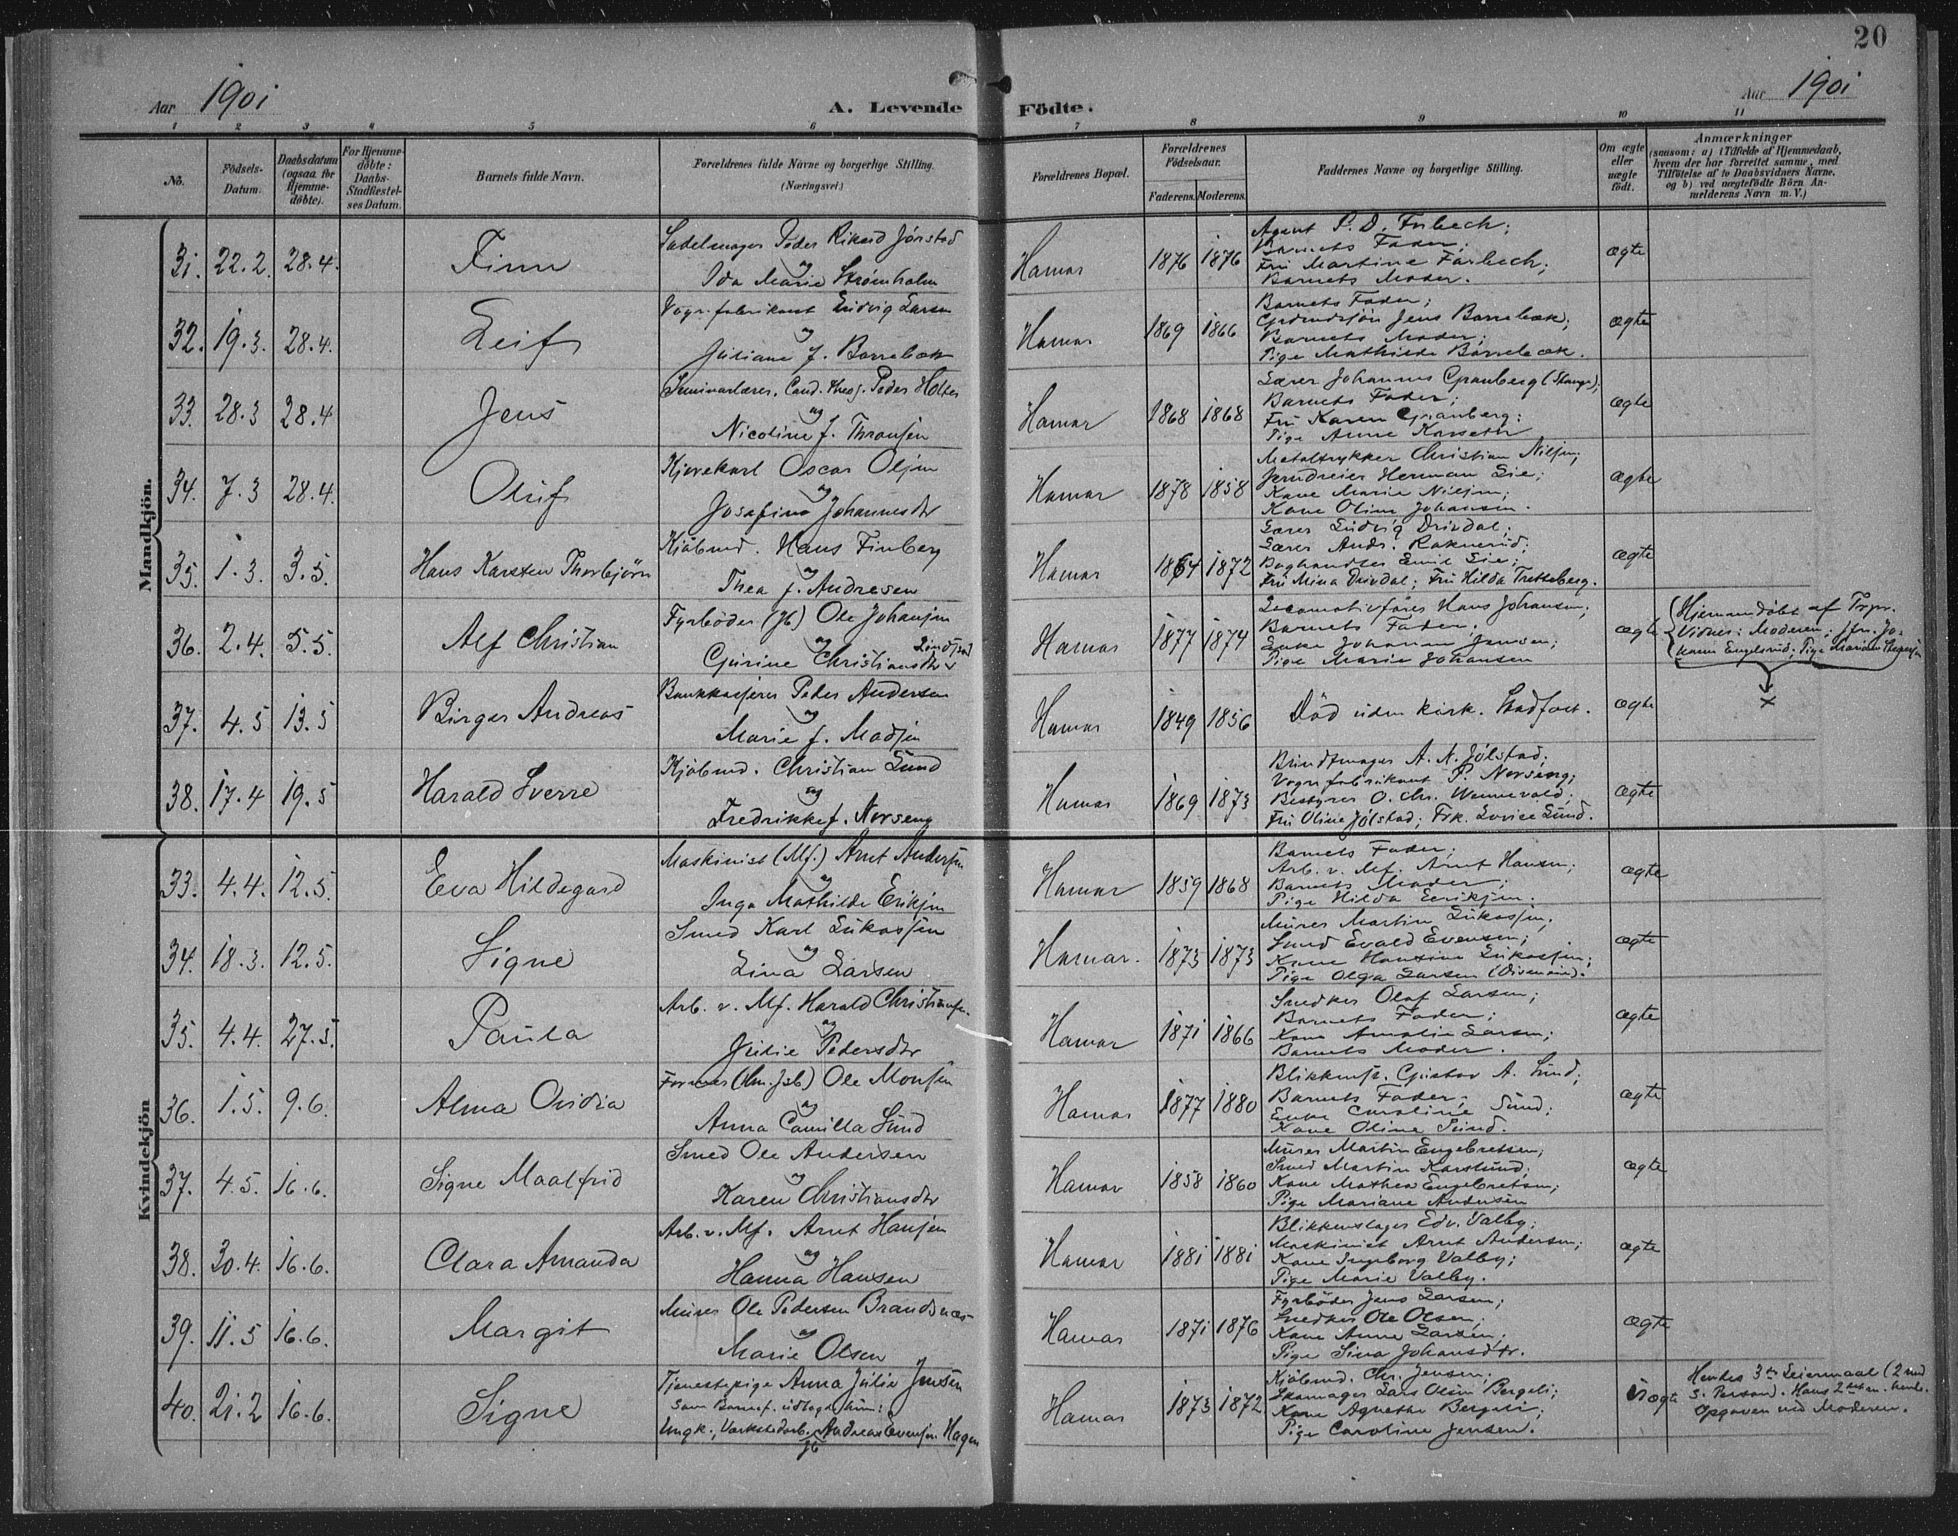 20
Aar 1901
A. Levende Födte.
Aar 1901
1 2 3 4 5 6 7 8 9 10 11
No.
Födsels-Datum.
Daabsdatum (ogsaa for Hjemme-döbte).
For Hjemme-döbte: Daabs-Stadfæstel-ses Datum.
Barnets fulde Navn.
Forældrenes fulde Navne og borgerlige Stilling. (Næringsvei)
Forældrenes Bopæl.
Forældrenes Födselsaar.
Faderens. Moderens.
Faddernes Navne og borgerlige Stilling.
Om ægte eller uægte födt.
Anmærkninger
(saasom: a) i Tilfælde af Hjemmedaab,
hvem der har forrettet samme, med
Tilföielse af to Daabsvidners Navne,
og b) ved uægtefödte Börn An-
melderens Navn m. V.)
Mandkjön.
31. 22.2. 28.4. Finn
Sadelmager Peder Rikard Jørstad
og
Ida Marie Strømholm
Hamar 1876 1876
Agent P. D. Farbech;
Barnets Fader;
Fru Martine Farbech;
Barnets Moder.
ægte
32. 19.3. 28.4. Leif
Vognfabrikant Ludvig Larsen
og
Juliane f. Borrebæk
Hamar 1869 1866
Barnets Fader;
Jens Borrebæk;
Barnets Moder;
Pige Mathilde Borrebæk.
ægte
33. 28.3 28.4 Jens
Seminarlærer, Cand. theol. Peder Holter
og
Nicoline f. Thransen
Hamar 1868 1868
Lærer Johannes Granberg (Stange);
Barnets Fader;
Fru Karen Granberg;
Pige Anne
ægte
34. 7.3 28.4. Oluf
Kjørekarl Oscar Olsen
og
Josefine Johannesdtr
Hamar 1878 1858
Metaltrykker Christian Nilsen;
Herman Lie;
Kone Marie Nilsen;
Kone Oline Johansen.
ægte
35. 1.3. 3.5. Hans Karsten Thorbjørn
Kjöbmd. Hans Finberg
og
Thea f. Andresen
Hamar 1864 1872
Lærer Ludvig Drivdal;
Lærer Andr. Raknerud;
Boghandler Emil Lie;
Fru Mina Drivdal; Fru Hilda Tretteberg.
ægte
36. 2.4. 5.5. Alf Christian
Fyrböder (Jb) Ole Johansen
og
Gurine Christiansdtr
Hamar 1877 1874
Locomotivförer Hans Johansen;
Barnets Fader;
Enke Johanne Jensen;
Pige Marie Johansen
ægte
Hjemmedöbt af
Vidner: Moderen; Jfr. Jo-
hanne Engelsrud; Pige
x
37. 4.5 13.5 Birger Andreas
Bankkasserer Peder Andersen
og
Marie f. Madsen
Hamar 1849 1856
Död uden kirk. Stadfæst.
ægte
38. 17.4 19.5 Harald Sverre
Kjöbmd. Christian Lund
og
Fredrikke f. Norseng
Hamar 1869 1873
Bundtmager A. N. Jølstad;
Vognfabrikant P. Norseng;
Bestyrer O. Chr. Wennevold;
Fru Oline Jølstad; Frk. Lovise Lund.
ægte
Kvindekjön
33. 4.4. 12.5. Eva Hildegard
Maskinist (Mf.) Arnt Andersen
og
Inga Mathilde Eriksen
Hamar 1859 1868
Barnets Fader;
Arb. v. Mf. Arnt Hansen;
Barnets Moder;
Pige Hilda Eeriksen.
ægte
34. 18.3. 12.5. Signe
Smed Karl Lukassen
og
Lina Larsen
Hamar. 1873 1873
Murer Martin Lukassen;
Smed Evald Evensen;
Kone Hansine Lukassen;
Pige Olga Larsen
ægte
35. 4.4. 27.5. Paula
Arb. v. Mf. Harald Christiansen
og
Julie Pedersdtr
Hamar 1871 1866
Snedker Olaf Larsen;
Barnets Fader;
Kone Amalie Larsen;
Barnets Moder.
ægte
36. 1.5. 9.6. Alma Ovidia
Former (Hm. Jsb) Ole Monsen
og
Anna Camilla Lund
Hamar 1877 1880
Blikkensl. Gustav A. Lund;
Barnets Fader;
Enke Caroline Lund;
Kone Oline Lund.
ægte
37. 4.5. 16.6. Signe Maalfrid
Smed Ole Andersen
og
Karen Christiansdtr
Hamar 1858 1860
Murer Martin Engebretsen;
Smed Martin Karslund;
Kone Mathea Engebretsen;
Pige Mariane Andersen
ægte
38. 30.4. 16.6. Clara Amanda
Arb. v. Mf. Arnt Hansen
og
Hanna Hansen
Hamar 1881 1881
Blikkenslager Edv. Valby;
Maskinist Arnt Andersen;
Kone Ingeborg Valby;
Pige Marie Valby.
ægte
39. 11.5 16.6. Margit
Murer Ole Pedersen Brandsnæs
og
Marie Olsen
Hamar 1871 1876
Fyrböder Jens Larsen;
Snedker Ole Olsen;
Kone Anne Larsen;
Pige Sina Johansdtr.
ægte
40. 21.2 16.6. Signe
Tjenestepige Anna Julie Jensen
Som Barnef. udlagt hun:
Ungk., Værkstedarb. Andreas Evensen Hagen
Hamar 1873 1872
Kjöbmd. Chr. Jensen;
Skomager Lars Olsen Bergeli;
Kone Agnethe Bergeli;
Pige Caroline Jensen.
uægte
Hendes 3die Leiermaal (2 med
s. Person). Hans 2det m. hende.
Opgaven ved Moderen.